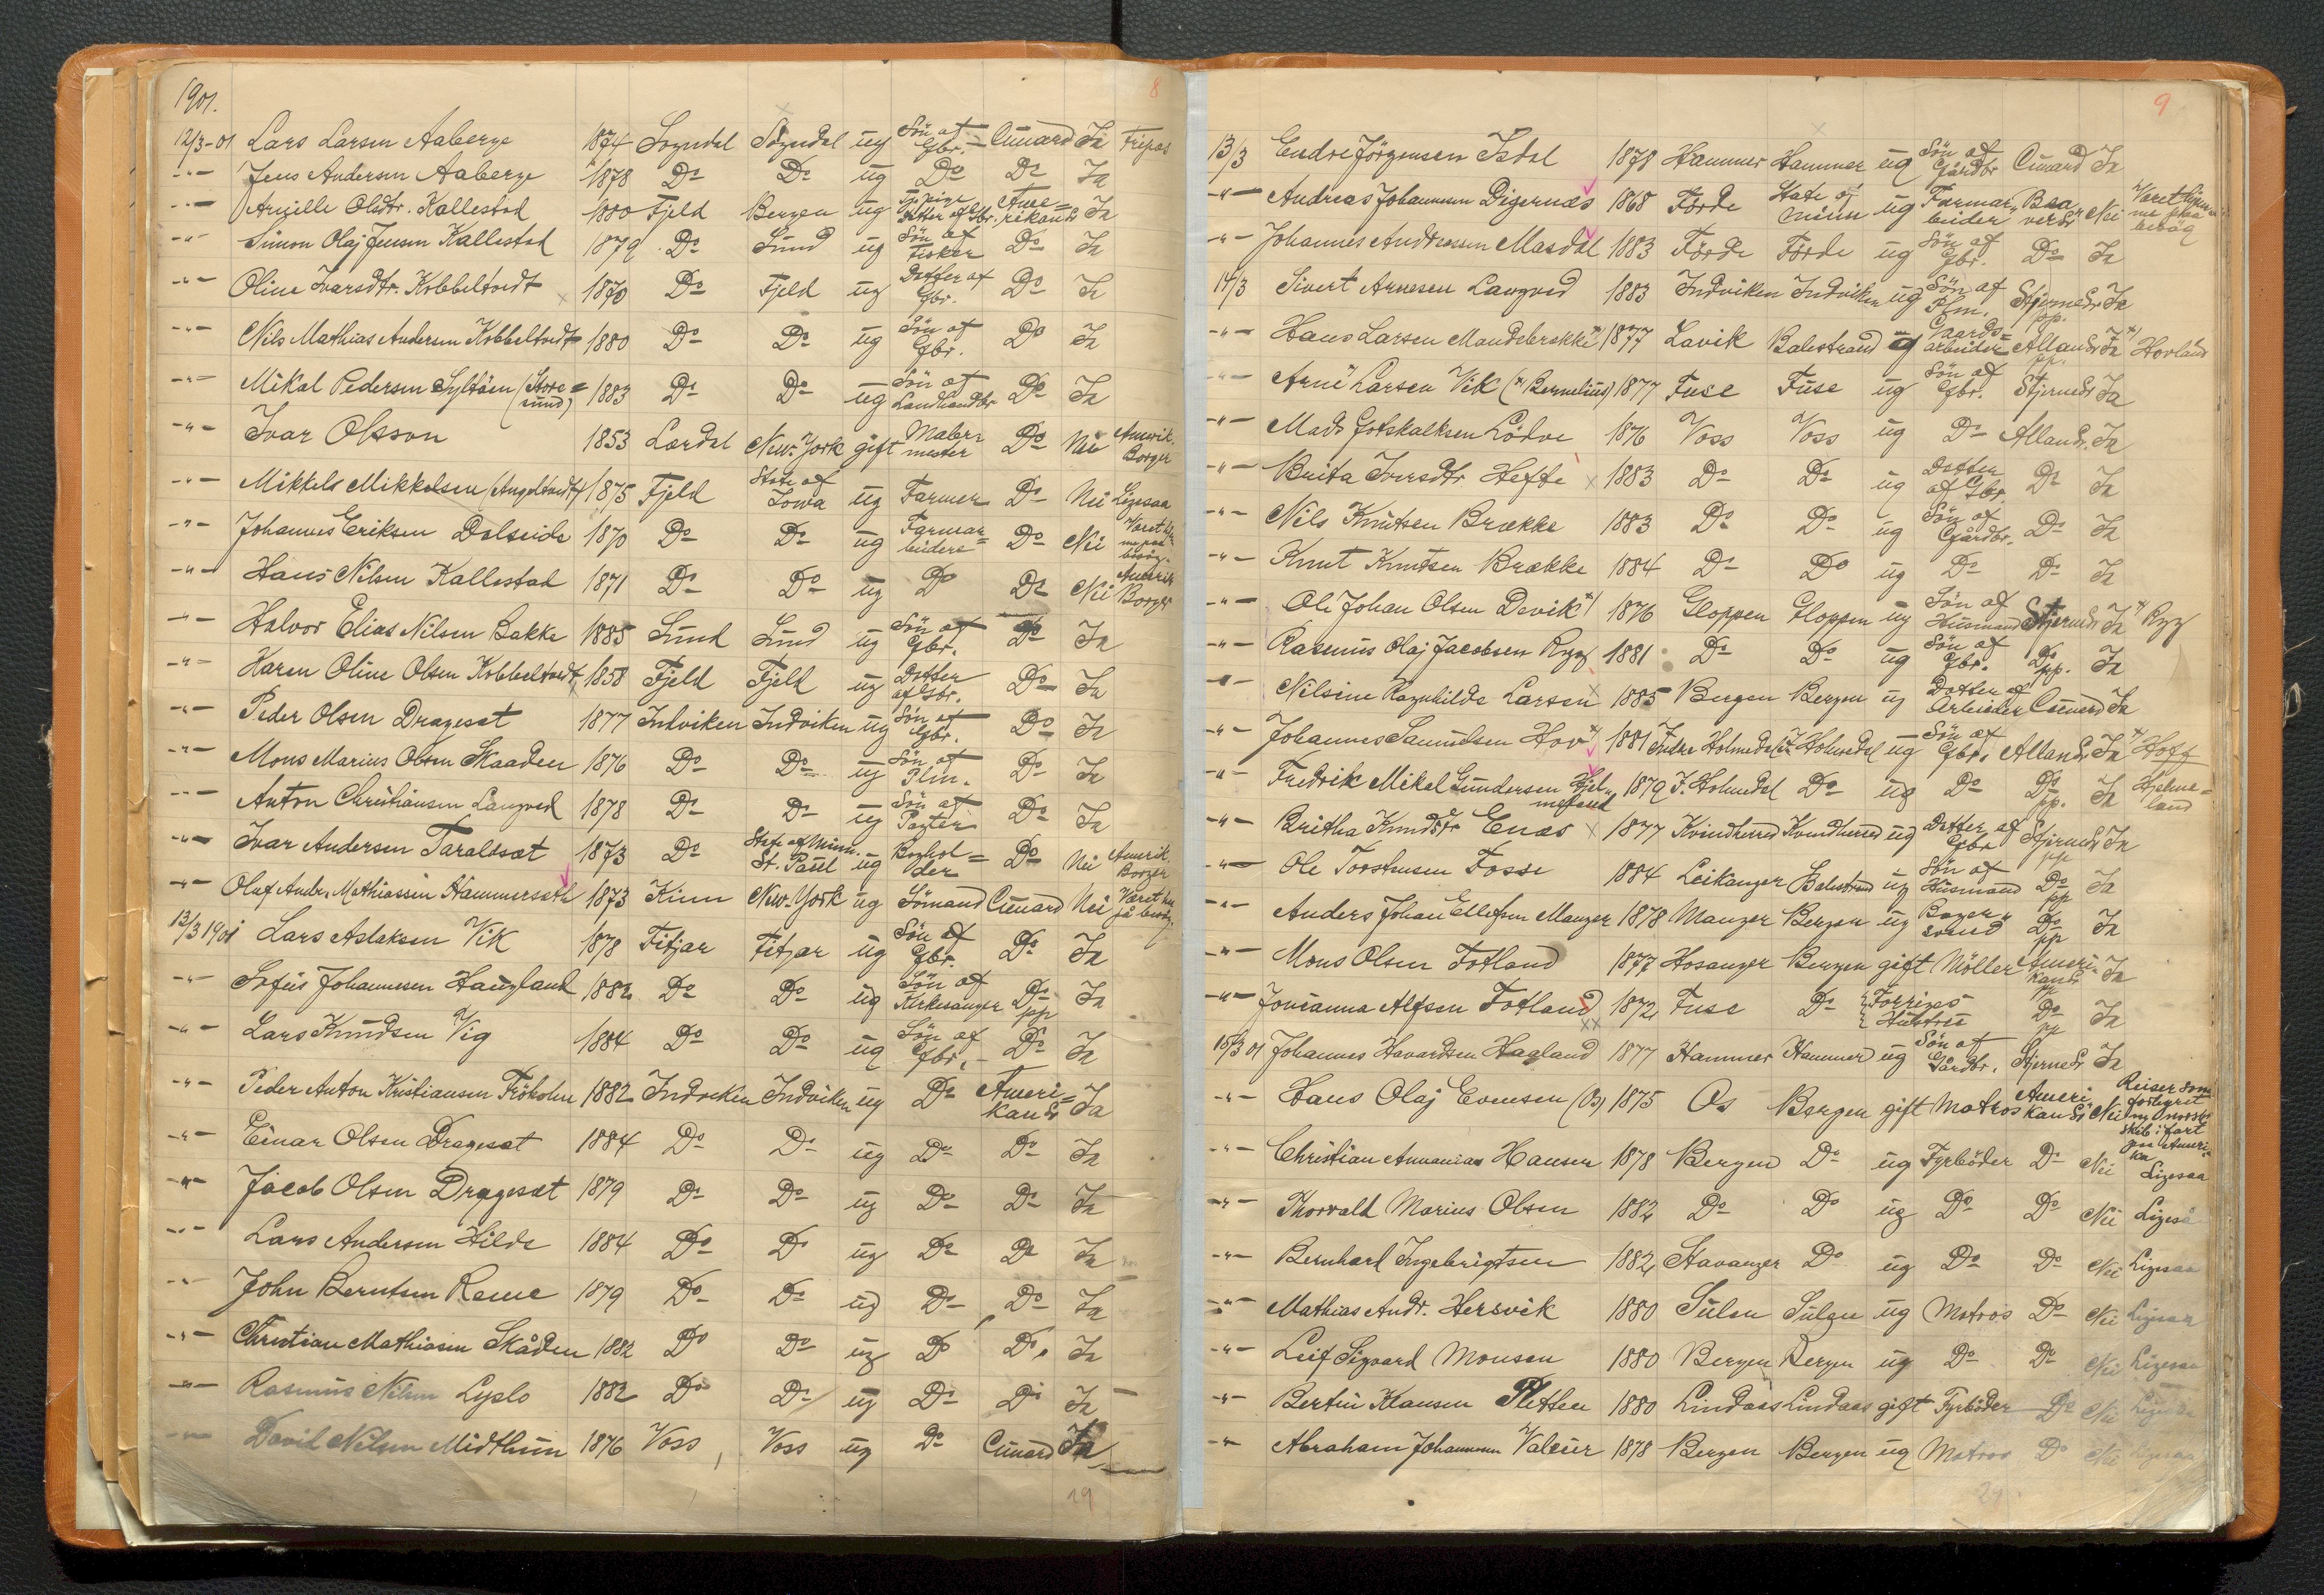 1901. 8
12/3-01 Lars Larsen Aaberge 1874 Sogndal Sogndal ug Sön af Gbr. Cunard Ja Fripas
-"- Jens Andersen Aaberge 1878 Do Do ug Do Do Ja
-"- Olsdtr. Kallestad 1880 Fjeld Bergen ug Datter af Gbr. Amerikansk Ja
-"- Simon Olaj Jensen Kallestad 1879 Do Sund ug Sön af Fisker Do Ja
-"- Oline Ivarsdtr. Kobbeltvedt x 1870 Do Fjeld ug Datter af Gbr. Do Ja
-"- Nils Mathias Andersen Kobbeltvedt 1880 Do Do ug Sön af Gbr. Do Ja
-"- Mikal Pedersen Syltöen (Storesund) 1883 Do Do ug Sön af Landhandlr Do Ja
-"- Ivar Olsson 1853 Lærdal New-York gift Malermester Do Nei Amerik. Borger
-"- Mikkels Mikkelsen (Angeltvedt) 1875 Fjeld State of Iowa ug Farmer Do Nei Ligesaa
-"- Johannes Eriksen Dalseide 1870 Do Do ug Farmarbeidere Do Nei Været hjemme paa besög
-"- Hans Nilsen Kallestad 1871 Do Do ug Do Do Nei Amerik Borger
-"- Halvor Elias Nilsen Bakke 1885 Sund Sund ug Sön af Gbr. Do Ja
-"- Karen Oline Olsen Kobbeltvedt 1858 Fjeld Fjeld ug Datter af Gbr. Do Ja
-"- Peder Olsen Dragesæt 1877 Indviken Indviken ug Sön af Gbr. Do Ja
-"- Mons Marius Olsen Skaaden 1876 Do Do ug Sön af Plm. Do Ja
-"- Anton Christiansen Langved 1878 Do Do ug Sön af Pagter Do Ja
-"- Ivar Andersen Taraldsæt 1873 Do State of Minn. St. Paul ug Boghol=der Do Nei Amerik. Borger
-"- Oluf Andr. Mathiassen Hammerseth 1873 Kinn New-York ug Sömand Cunard Nei Været hje på besög
13/3 1901 Lars Aslaksen Vik 1878 Fitjar Fitjar ug Sön af Gbr. Do Ja
-"- Sofus Johannesen Haugland 1882 Do Do ug Sön af Kirkesanger Do pp Ja
-"- Lars Knudsen Vig 1884 Do Do ug Sön af Gbr. Do Ja
-"- Peder Anton Kristiansen Fröholm 1882 Indviken Indviken ug Do Ameri=kansk Ja
-"- Einar Olsen Dragesæt 1884 Do Do ug Do Do Ja
-"- Jacob Olsen Dragesæt 1879 Do Do ug Do Do Ja
-"- Lars Andersen Hilde 1884 Do Do ug Do Do Ja
-"- John Berntsen Reme 1879 Do Do ug Do Do Ja
-"- Christian Mathiasen Skåden 1882 Do Do ug Do Do Ja
-"- Rasmus Nilsen Lyslo 1882 Do Do ug Do Do Ja
-"- David Nilsen Midthun 1876 Voss Voss ug Do Cunard Ja
29
9
13/3 Endre Jörgensen Isdal 1878 Hammer Hammer ug Sön af Gårdbr Cunard Ja
-"- Andreas Johannesen Digernæs 1868 Förde State of Minn ug Farmarbeider Nei Været hjemme paa besög
-"- Johannes Andreassen Masdal 1883 Förde Förde ug Sön af Gbr. Do Ja
14/3 Sivert Arnesen Langved 1883 Indviken Indviken ug Sön af Plm. Stjerneli pp. Ja
-"- Hans Larsen Mandebrekke *) 1877 Lavik Balestrand ug Gaardsarbeider Allanli pp. Ja *) Hovland
-"- Arne Larsen Vik (*Bernelius) 1877 Fuse Fuse ug Sön af Gbr. Stjerneli Ja
-"- Mads Gotskalksen Lödve 1876 Voss Voss ug Do Allanli. Ja
-"- Brita Iversdtr Hefte x 1883 Do Do ug Datter af Gbr. Do Ja
-"- Nils Knutsen Brække 1883 Do Do ug Sön af Gårdbr. Do Ja
-"- Knut Knutsen Brække 1884 Do Do ug Do Do Ja
-"- Ole Johan Olsen Devik *) 1876 Gloppen Gloppen ug Sön af Husmand Stjerneli Ja *) Rygg
-"- Rasmus Olaj Jacobsen Rygg 1881 Do Do ug Sön af Gbr. Do pp. Ja
-"- Nilsine Ragnhilde Larsen x 1885 Bergen Bergen ug Datter af Arbeider Cunard Ja
-"- Johannes Samuelsen Hov *) 1881 Indre Holmedal I. Holmedal ug Sön af Gbr. Allanli Ja *) Hoff
-"- Fredrik Mikal Gundersen Hjelmeland 1879 I. Holmedal Do ug Do Do pp. Ja Hjelme=land
-"- Britha Knudsdtr Enæs x 1877 Kvindherred Kvindherred ug Datter af Gbr Stjerneli pp Ja
-"- Ole Torstensen Fosse 1884 Leikanger Balestrand ug Sön af Husmand Do pp Ja
-"- Anders Johan Ellefsen Manger 1878 Manger Bergen ug Bagersvend Do pp Ja
-"- Mons Olsen Totland 1877 Hosanger Bergen gift Möller Amerikansk pp Ja
-"- Alfsen Totland xx 1872 Fuse Do Forriges Hustru Do pp Ja
15/3 01 Johannes Havardsen Haaland 1877 Hammer Hammer ug Sön af Gårdbr. Stjerneli Ja
-"- Hans Olaj Evensen (Os) 1875 Os Bergen gift Matros Amerikansk Nei Reiser som forhyret m norsk skib i fart paa Amerika
-"- Christian Annanias Hansen 1878 Bergen Do ug Fyrböder Do Nei Ligesaa
-"- Thorvald Marius Olsen 1882 Do Do ug Do Do Nei Ligeså
-"- Bernhard Ingebrigtsen 1882 Stavanger Do ug Do Do Nei Ligesaa
-"- Mathias Andr. Hersvik 1880 Sulen Sulen ug Matros Do Nei Ligesaa
-"- Leif Sigvard Monsen 1880 Bergen Bergen ug Do Do Nei Ligesaa
-"- Bertin Klausen Pletten 1880 Lindaas Lindaas gift Fyrböder Do Nei Ligesaa
-"- Abraham Johannesen Valeur 1878 Bergen Bergen ug Matros Do Nei Ligesaa
29